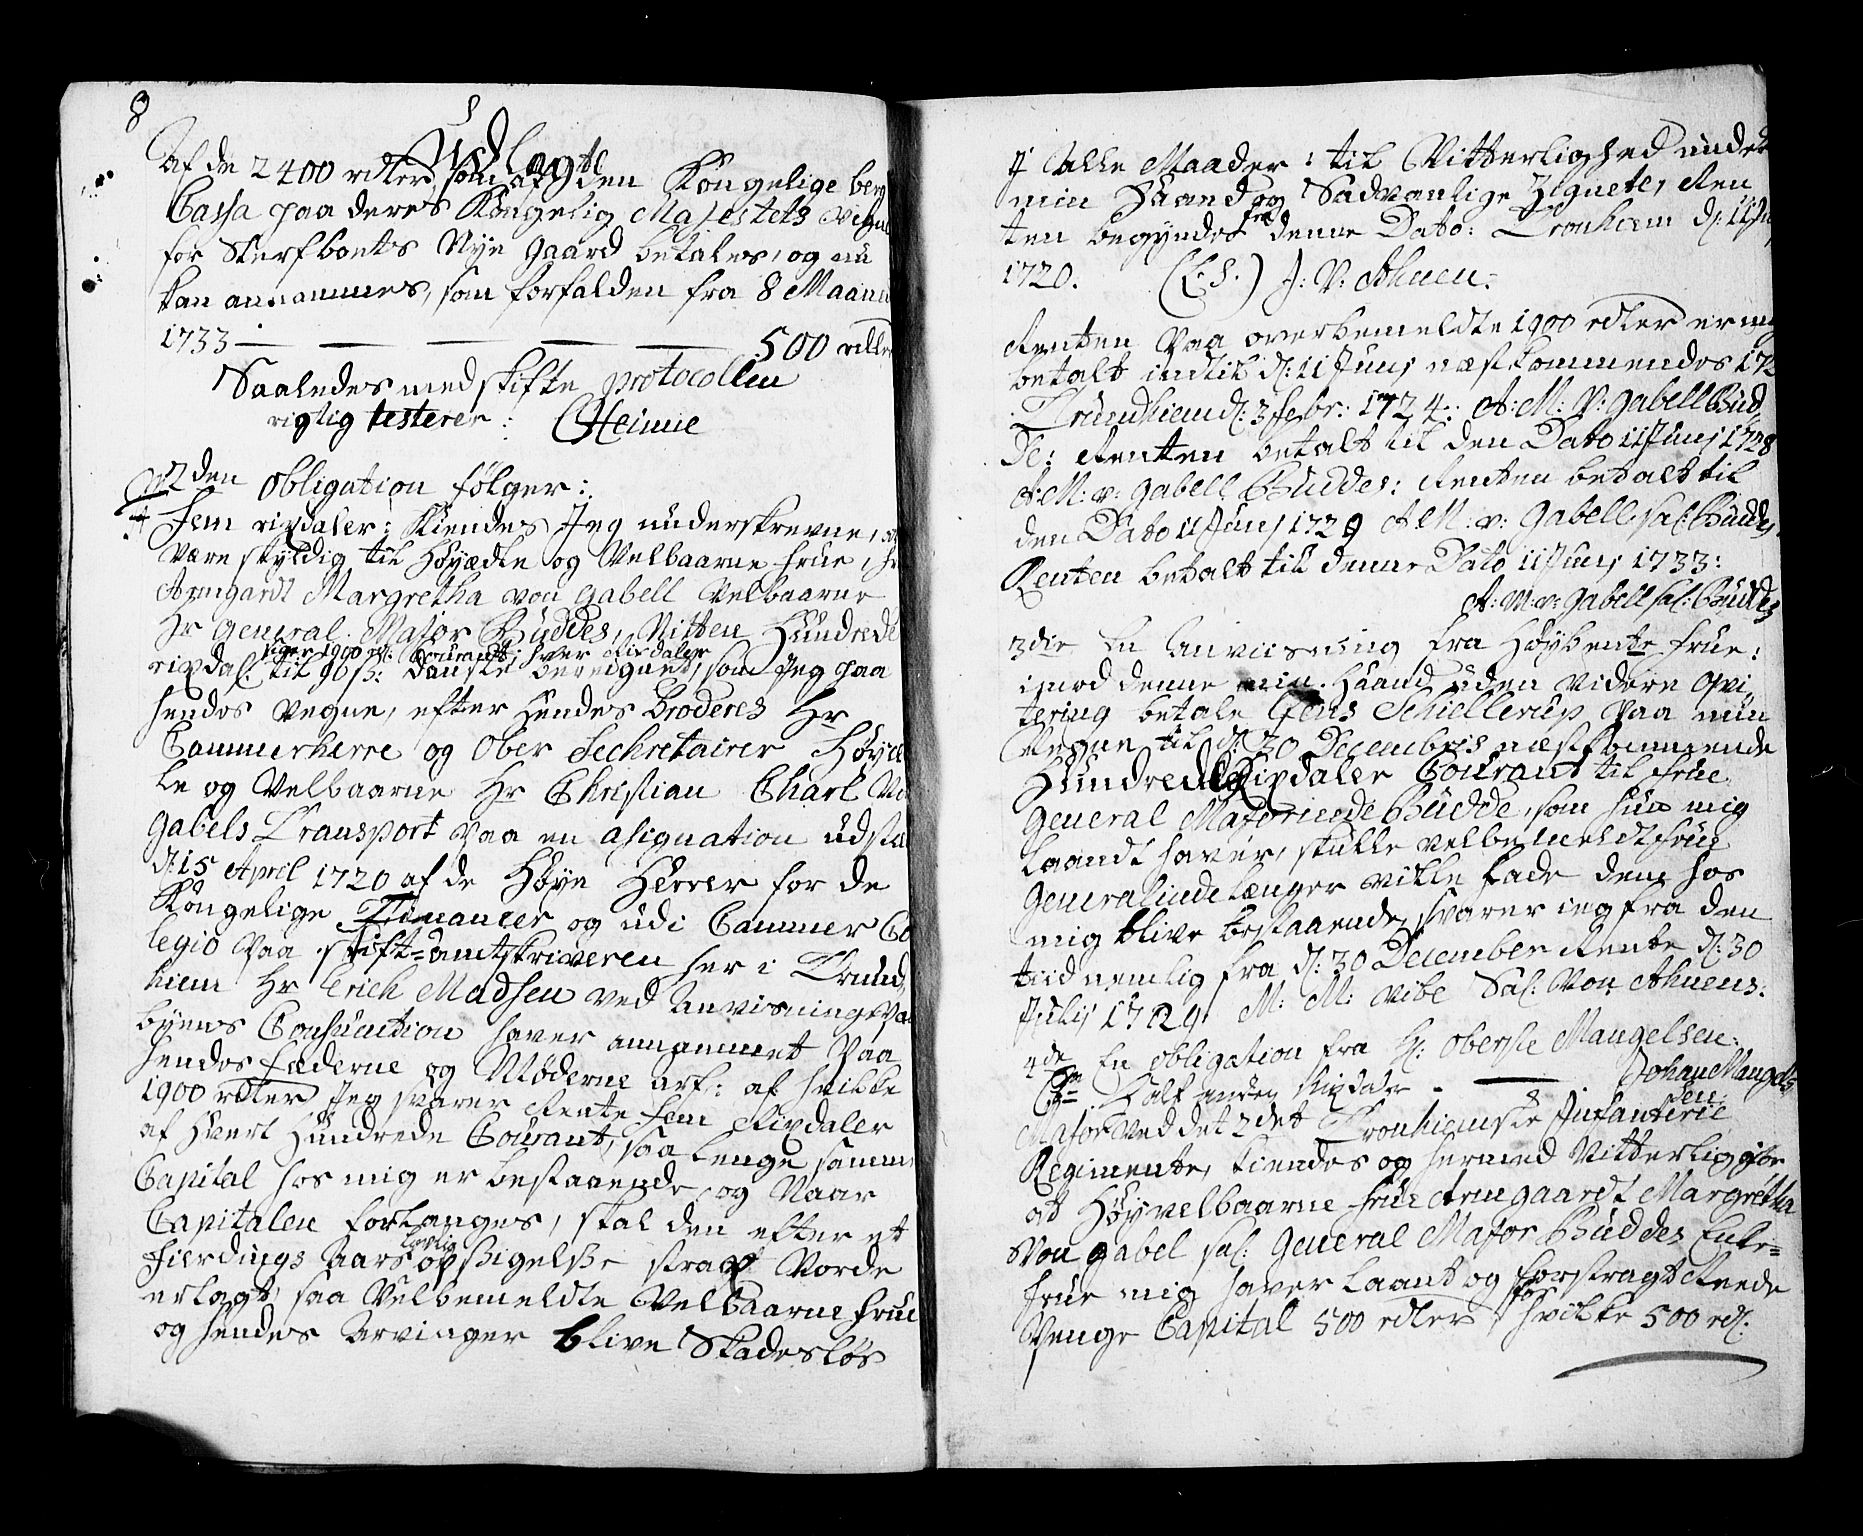 8
Udlagt
Af de 2400 rdler som af den Kongelige berg
Cassa paa deres Kongelig Majestets Vegne
for Sterfboets Nye gaard betales, og nu
kan annammes, som forfalden fra 8 Maaned
1733 — — — — — 500 rdler
Saaledes med skifte protocollen
rigtig testerer: CHeimie
2den Obligation følger:
Fem rixdaler: Kiendes Jeg underskrevne, at
være skyldig til Høyædle og Velbaarne Frue, Fr
Armgardt Margretha von Gabell Velbaarne
Hr General Major Büddes, Nitten Hundrede
siger 1900 rd: Courant, hver Rixdaler
rixdal. til 96 ß: danske bereignet, som Jeg paa
hendes Vegne, efter Hendes Broders Hr
Cammerherre og Ober Sechretairer Høyæd
le og Velbaarne Hr Christian Charl Von
Gabels Transport paa en asignation udstæd
d: 15 April 1720 af de Høye Herrer for de
Kongelige Finantzer og udi Cammer Co
legio paa Stift-amtskriveren her i Trund,
hiem Hr Erich Madsen ved Anvisning paa
byens Consumtion haver annammet paa
hendes Fæderne og Møderne arf: af hvilke
1900 rdler Jeg svarer Rente fem Rixdaler
af Hvert Hundrede Courant, saa lenge samme
Capital hos mig er bestaaende, og Naar
Capitalen forlanges, skal den efter et
Fierdings Aars lovlig opsigelse strax Vorde
erlagt, saa Velbemeldte Velbaarne Frue
og hendes Arvinger blive Skadesløs
i alle Maader: til Vitterlighed under
min Haand og Sædvanlige Zignete, Ren
ten begyndes fra denne Dato: Tronhiem d: 11 Jun
1720. (L.S.) J: V: Ahnen:
Renten paa overbemeldte 1900 rdler er mig
betalt indtil d: 11 Junj næstkommendes 172
Trundhiem d: 3 febr: 1724: A: M: V: Gabell Büd,
De: Renten betalt til den Dato 11 Junj 1728
A: M: v: Gabell Büddes: Renten betalt til
den Dato 11 Junj 1729 A M: v: Gabell sal: Büddes.
Renten betalt til denne Dato 11 Junj 1733:
A: M: v: Gabell sal: Büddes
3die En Anviisning fra Høybente Frue:
imod denne min Haand uden videre qvi,
tering betale Jens Schiellerup paa min
Vegne til d: 30 Decembris næstkommende
Hundrede Rixdaler Courant til Frue
General Majorinde Büdde, som hun mig
laandt haver, skulle velbemeldt Frue
Generalinde længer ville lade dem hos
mig blive bestaaende, svarer ieg fra den
tiid nemlig fra d: 30 December Rente d: 30
Julij 1729 M: M: Vibe Sal: Von Ahnens:
4de En obligation fra Hr: Oberste Mangelsen:
Een Half anden Rixdaler - — . Johan Mangel
sen
Major Ved det 2det Tronhiemske Infanterie
Regimente, kiendes og hermed Vitterlig giør
at Høyvelbaarne Frue Armgaardt Margretha
Von Gabel sal: General Major Büddes Enke-
frue mig haver laant og forstragt Reede
Penge Capital 500 rdler for hvilke 500 rd.